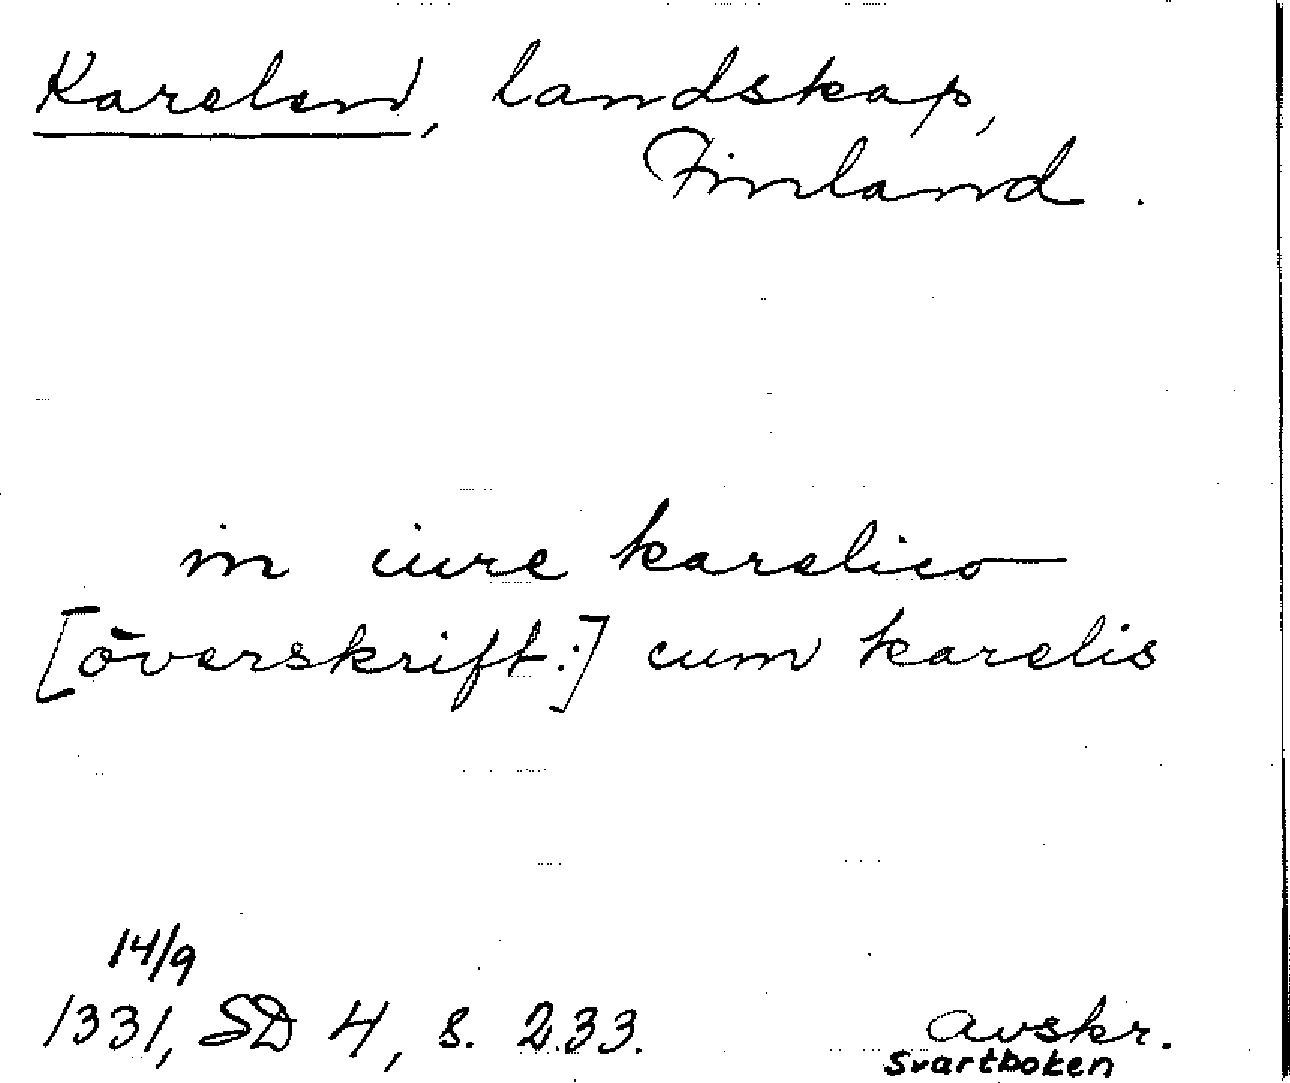 Karelen, landskap,
Finland.
in iure karelico
[överskrift:] cum karelis
14/9
1331, SD 4, s. 233.
avskr.
Svartboken